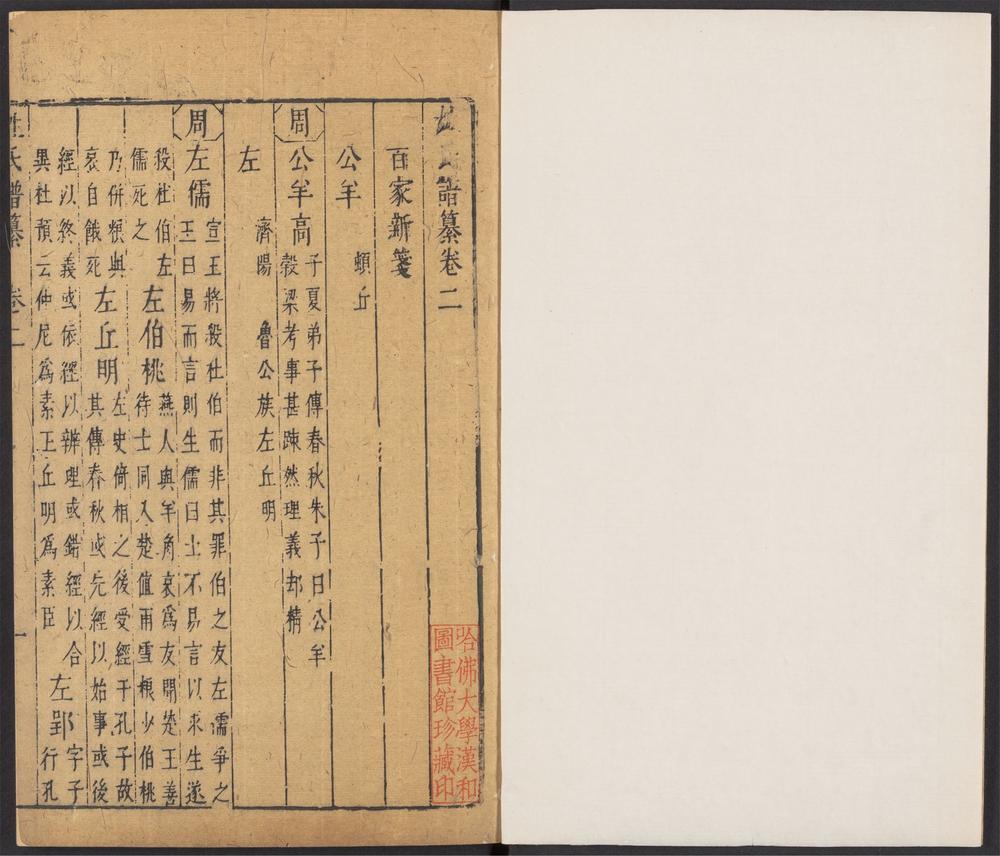 姓氏譜纂卷二
百家新箋
公羊
頓丘
周 公羊高 子夏弟子傳春秋朱子曰公羊
榖梁考事甚踈然理義却精
左
濟陽 魯公族左丘明
周 左儒 宣王將殺杜伯而非其罪伯之友左儒爭之
王曰易而言則生儒曰士不易言以求生遂
殺杜伯左
儒死之
左伯桃 燕人與羊角哀爲友聞楚王善
待士同入楚値雨雪粮少伯桃
乃併粮與
哀自餓死
左丘明 左史倚相之後受經于孔子故
其傳春秋或先經以始事或後
經以終義或依經以辨理或錯經以合
異杜預云仲尼爲素王丘明爲素臣
左郢 字子
行孔
姓氏譜纂 卷二 一
哈佛大學漢和
圖書館珍藏印